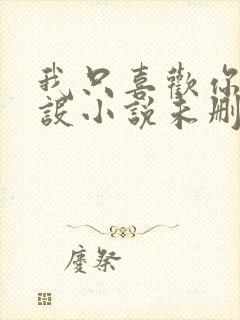 我只喜歡你
設小說未刪
慶祭